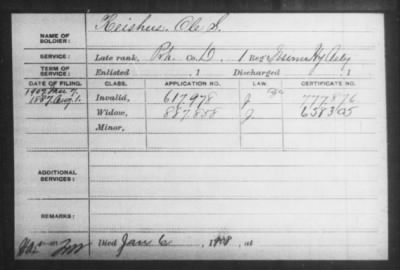 NAME OF SOLDIER: Keishus, Ole S.
SERVICE: Late rank, Pvt. Co. D, 1 Reg't Hy Arty
TERM OF SERVICE: Enlisted , 1 Discharged , 1
DATE OF FILING. CLASS. APPLICATION NO. LAW. CERTIFICATE NO.
Invalid, 617,978 J 777,876
1887 Aug 1. Widow, 887,858 J 658305
Minor,
ADDITIONAL SERVICES:
REMARKS:
Died Jan 6, 1908, at